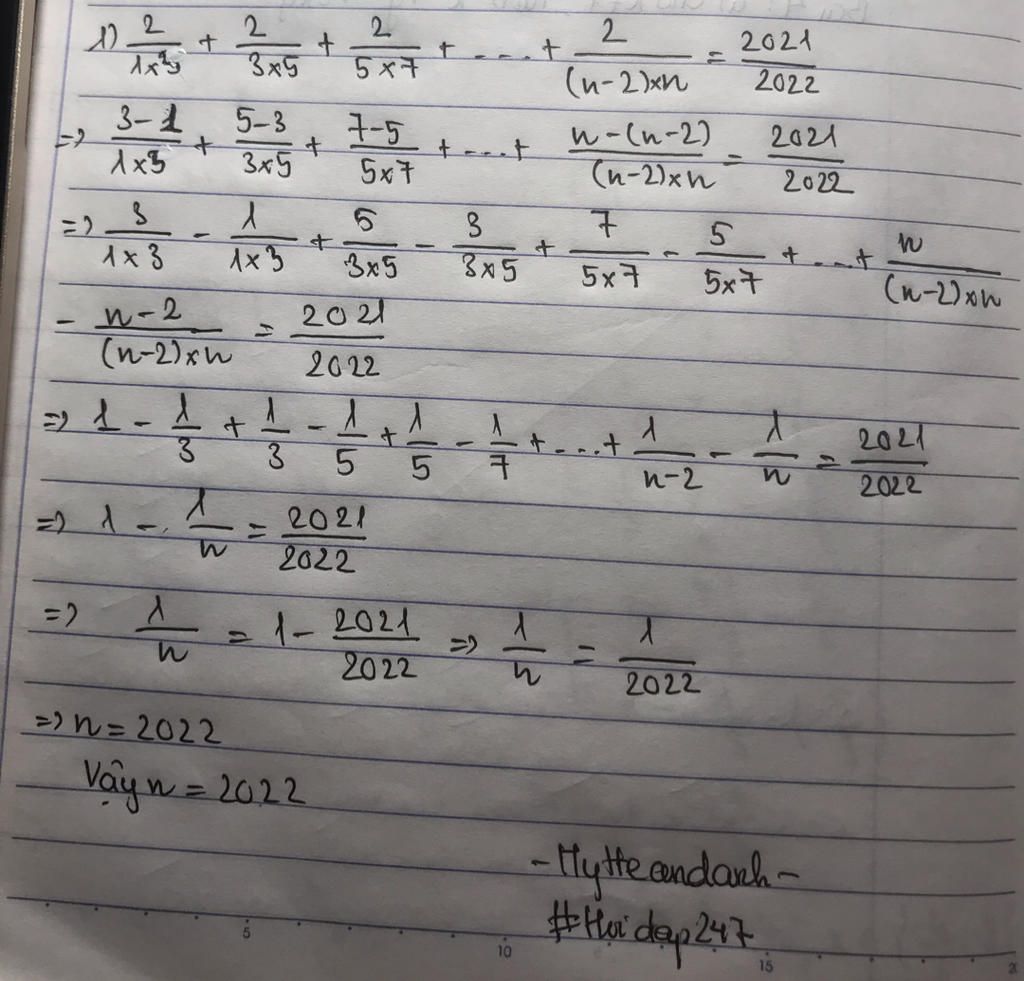 1) 2/(1×3) + 2/(3×5) + 2/(5×7) + .... + 2/((n-2)×n) = 2021/2022
=> (3-1)/(1×3) + (5-3)/(3×5) + (7-5)/(5×7) + ...+ (n-(n-2))/((n-2)×n) = 2021/2022
=> 3/(1×3) - 1/(1×3) + 5/(3×5) - 3/(3×5) + 7/(5×7) - 5/(5×7) + ...+ n/((n-2)×n)
- (n-2)/((n-2)×n) = 2021/2022
=> 1 - 1/3 + 1/3 - 1/5 + 1/5 - 1/7 + ...+ 1/(n-2) - 1/n = 2021/2022
=> 1 - 1/n = 2021/2022
=> 1/n = 1 - 2021/2022 => 1/n = 1/2022
=> n = 2022
Vậy n = 2022
#Hoidap247
5 10 15